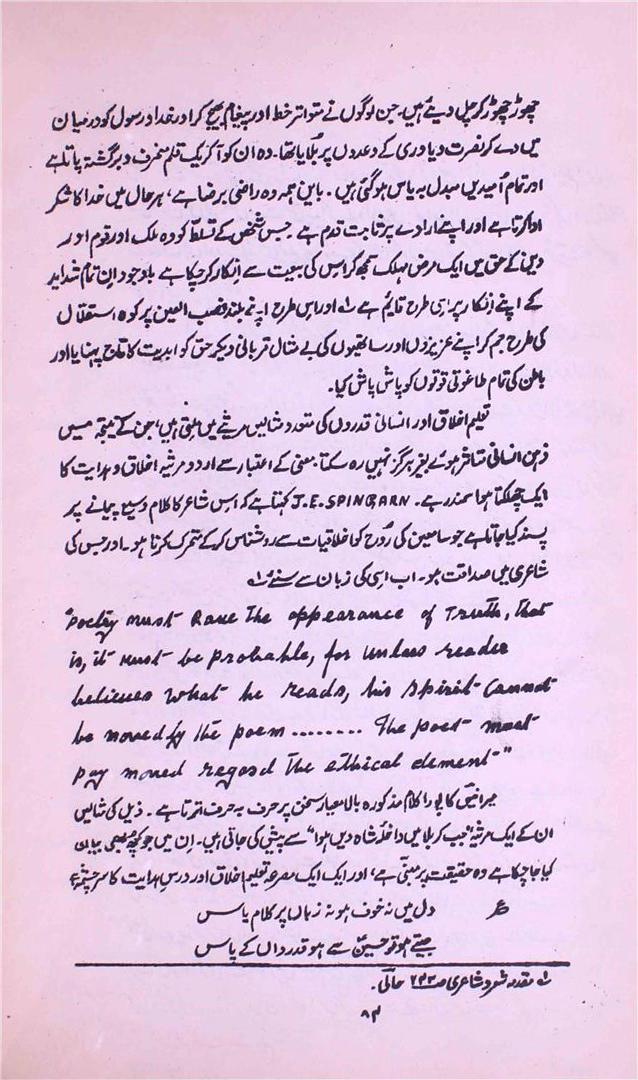 چھوڑ چھوڑ کر چل دیئے ہیں۔ جن لوگوں نے متواتر خط اور پیغام بھیج کر اور خدا و رسول کو درمیان
میں دے کر نصرت و یاوری کے وعدوں پر بلایا تھا۔ وہ ان کو آ کر یک قلم منحرف و برگشتہ پاتا ہے
اور تمام اُمیدیں مبدل بہ یاس ہو گئی ہیں۔ بایں ہمہ وہ راضی برضا ہے، ہر حال میں خدا کا شکر
ادا کرتا ہے اور اپنے ارادے پر ثابت قدم ہے جس شخص کے تسلّط کو وہ ملک اور قوم اور
دین کے حق میں ایک مرض مہلک سمجھ کر اس کی بیعت سے انکار کر چکا ہے باوجود ان تمام شداید
کے اپنے انکار پر اسی طرح قایم ہے ۱؎ اور اس طرح اپنے بلند نصب العین پر کوہ استقلال
کی طرح جم کر اپنے عزیزوں اور ساتھیوں کی بے مثال قربانی دیکر حق کو ابدیت کا تاج پہنایا اور
باطل کی تمام طاغوتی قوتوں کو پاش پاش کیا۔
تعلیم اخلاق اور انسانی قدروں کی متعدد مثالیں مرثیے میں ملتی ہیں، جن کے نتیجہ میں
ذہن انسانی متاثر ہوئے بغیر ہرگز نہیں رہ سکتا، معنی کے اعتبار سے اردو مرثیہ اخلاق و ہدایت کا
ایک چھلکتا ہوا سمندر ہے۔ J.E.SPINGARN کہتا ہے کہ اس شاعر کا کلام وسیع پیمانے پر
پسند کیا جاتا ہے جو سامعین کی رُوح کو اخلاقیات سے روشناس کر کے متحرک کرتا ہو۔ اور جس کی
شاعری میں صداقت ہو۔ اب اسی کی زبان سے سنئے ۱؎
"Poetry must have The appearance of Truth, That
is, it must be probable, for unless reader
believes what he reads, his spirit cannot
be moved by the poem ........ The poet must
pay moved regard The ethical element"
میر انیسؔ کا پورا کلام مذکورہ بالا معیار سخن پر حرف بہ حرف اترتا ہے۔ ذیل کی مثالیں
ان کے ایک مرثیہ "جب کربلا میں داخلۂ شاہ دیں ہوا" سے پیش کی جاتی ہیں۔ ان میں جو کچھ بھی بیان
کیا جا چکا ہے وہ حقیقت پر مبنی ہے، اور ایک ایک مصرعہ تعلیم اخلاق اور درس ہدایت کا سرچشمہ ہے
؏ دل میں نہ خوف ہو نہ زباں پر کلام یاس
جیتے ہو تو حسینؑ سے ہو قدرداں کے پاس
۱؎ مقدمہ شعر و شاعری ص ۲۴۳ حالیؔ۔
۸۴